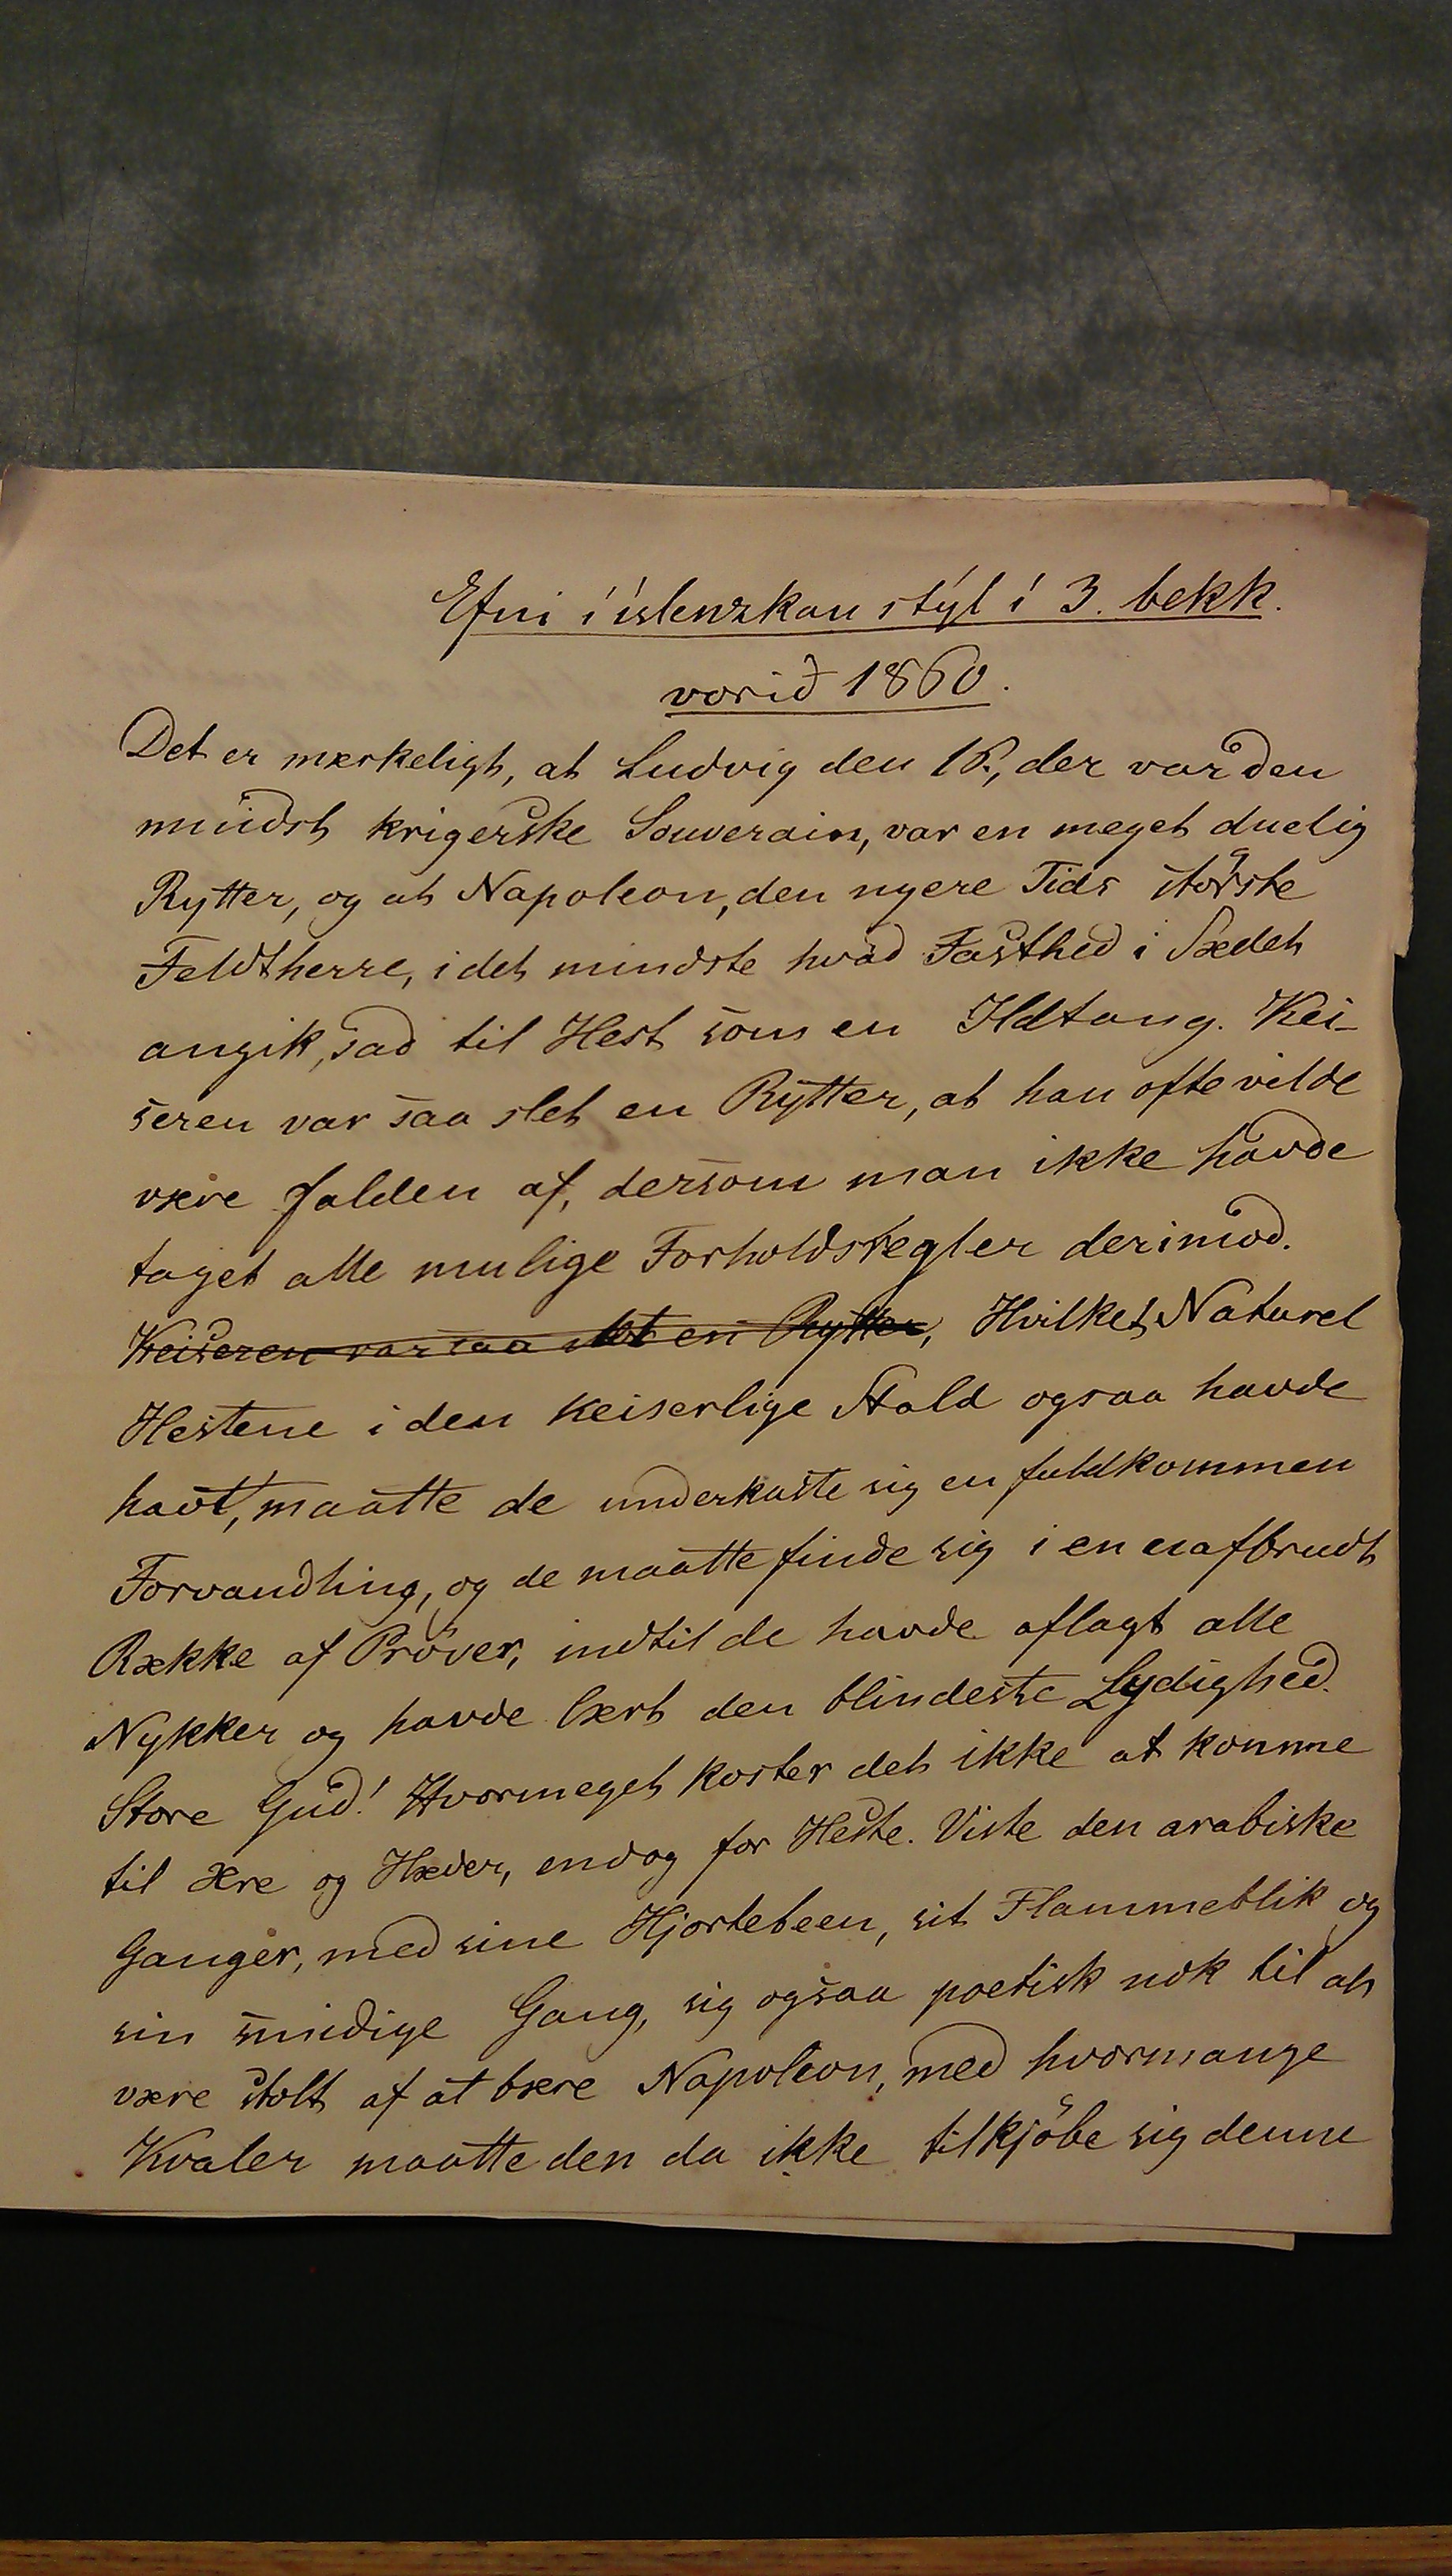 Efni í íslenzkan stýl í 3. bekk.
vorið 1860.
Det er mærkeligt, at Ludvig den 16., der var den
mindst krigerske Souverain, var en meget duelig
Rytter, og at Napoleon, den nyere Tids störste
Feldtherre, i det mindste hvad Fasthed i Sædet
angik, sad til Hest som en Ildtang. Kei-
seren var saa slet en Rytter, at han ofte vilde
være falden af, dersom man ikke havde
taget alle mulige Forholdsregler derimod.
Keiseren var saa slet en Rytter, Hvilket Naturel
Hestene i den Keiserlige Stald ogsaa havde
havt, maatte de underkaste sig en fuldkommen
Forvandling, og de maatte finde sig i en uafbrudt
Række af Pröver, indtil de havde aflagt alle
Nykker og havde lært den blindeste Lydighed.
Store Gud! Hvormeget koster det ikke at komme
til Ære og Hæder, endog for Heste. Viste den arabiske
Ganger, med sine Hjorteben, sit Flammeblik og
sin smidige Gang, sig ogsaa poetisk nok til at
være stolt af at bære Napoleon, med hvormange
Kvaler maatte den da ikke tilkjöbe sig denne